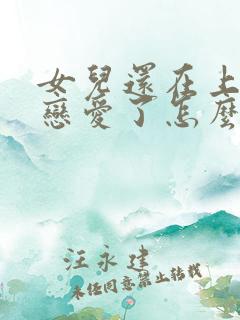 女兒還在上
戀愛了怎麼
汪永建
未经同意禁止转载